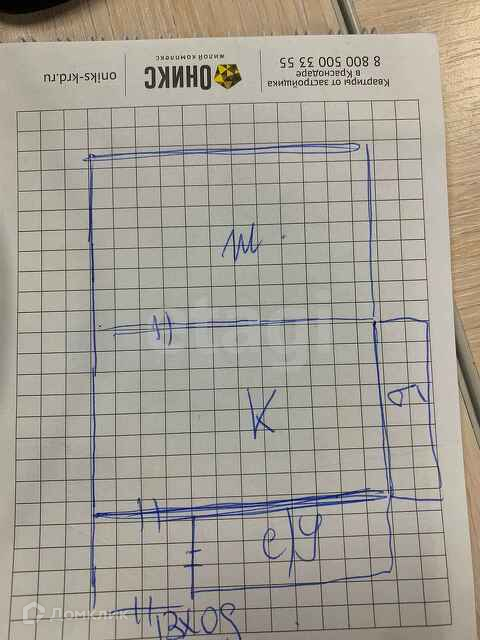 oniks-krd.ru
ОНИКС
ЖИЛОЙ КОМПЛЕКС
Квартиры от застройщика
в Краснодаре
8 800 500 33 55
К
Б
с/у
вход
Домклик